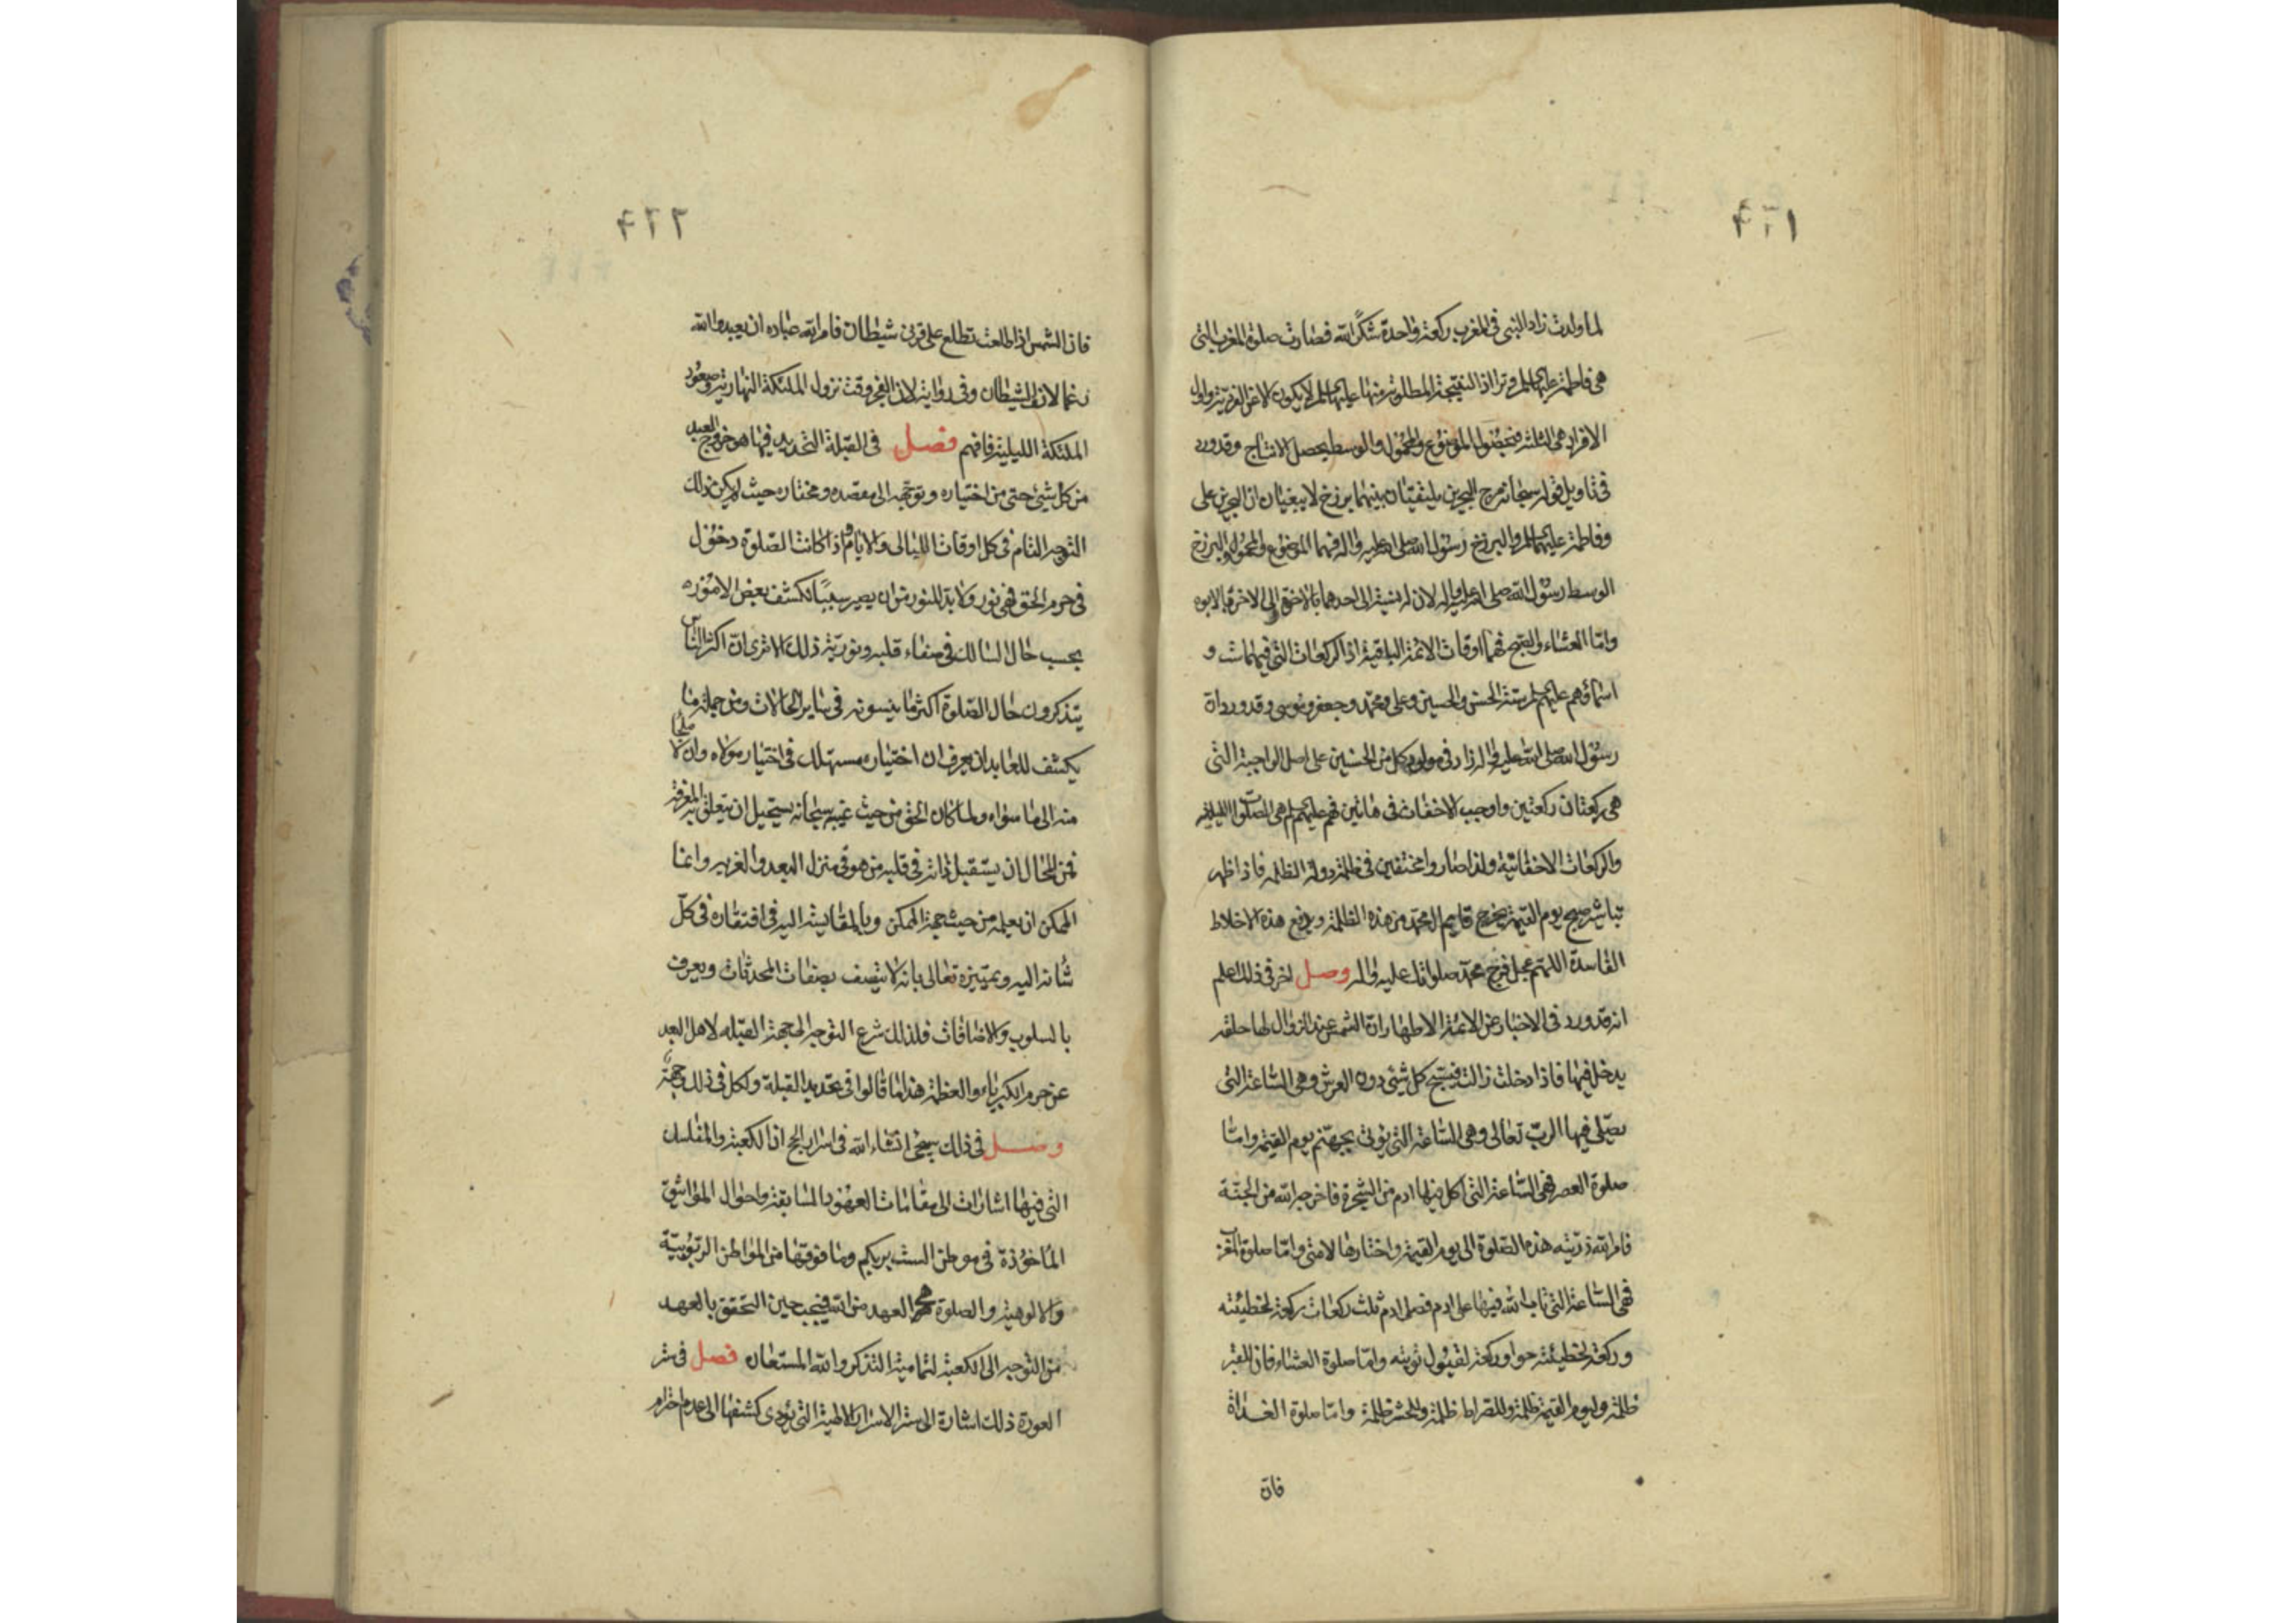 لما ولدت زاد النبي في المغرب ركعة واحدة شكرًا لله فصارت صلوة المغرب التي
هي فاطمة عليها السلم وترا اذ النتيجة المطلوبة منها عليها السلم لا يكون الا عن الفردية واول
الافراد هي الثلثة فبحضول الموضوع والمحمول والوسط يحصل الانتاج وقد ورد
في تاويل قوله سبحانه مرج البحرين يلتقيان بينهما برزخ لا يبغيان ان البحرين على
وفاطمة عليهما السلم والبرزخ رسول الله صلى الله عليه واله فهما الموضوع والمحمول والبرزخ
الوسط رسول الله صلى الله عليه واله لان له نسبة الى احدهما بالاخوة والى الاخر بالابوه
وامّا العشاء والصبح فهما اوقات الائمة الباقية اذ الركعات التي فيهما ست و
اسماؤهم عليهم السلم ستة الحسن والحسين وعلى ومحمد وجعفر وموسى وقد ورد ان
رسول الله صلى الله عليه واله زاد في مولد كل من الحسنين على اصل الواجبة التي
هي ركعتان ركعتين واوجب الاخفات في هاتين فهم عليهم السلم هي الصلوات الليلية
والركعات الاخفاتية ولذا صاروا مختفين في ظلمة دولة الظلمه فاذا ظهر
تباشير صبح يوم القيمة يخرج قايم ال محمد من هذه الظلمة ويرفع هذه الاخلاط
الفاسدة اللهم عجل فرج محمد صلواتك عليه واله وصل اخر في ذلك اعلم
انه قد ورد في الاخبار عن الائمة الاطهار ان الشمس عند الزوال لها حلقه
يدخل فيها فاذا دخلت زالت فيسبح كل شئ دون العرش وهي الساعة التي
يصلى فيها الرب تعالى وهي الساعة التي يؤتى بجهنم يوم القيمة وامّا
صلوة العصر فهي الساعة التي اكل فيها ادم من الشجرة فاخرجه الله من الجنة
فامر الله ذريته هذه الصلوة الى يوم القيمة واختارها لامتي وامّا صلوة المغرب
فهي الساعة التي تاب الله فيها على ادم فصلى ادم ثلث ركعات ركعة لخطيئته
وركعة لخطيئة حوا وركعة لقبول توبته وامّا صلوة العشاء فان للقبر
ظلمة وليوم القيمة ظلمة وللصراط ظلمة وللحشر ظلمة وامّا صلوة الغداة
فان
٢٢٢
فان الشمس اذا طلعت تطلع على قرني شيطان فامر الله عباده ان يعبدوا الله
رغما لانف الشيطان وفي رواية لان الفجر وقت نزول الملئكة النهارية وصعود
الملئكة الليلية فافهم فصل في القبلة التحديد فيها هو خروج العبد
من كل شئ حتى من اختياره وتوجهه الى مقصده ومختاره حيث لم يكن ذلك
التوجه التام في كل اوقات الليالى والايام واذا كانت الصلوة دخول
في حرم الحق فهي نور ولا بد للنور من ان يصير سببا لكشف بعض الامور
بحسب حال السالك في صفاء قلبه ونورية ذلك الا ترى ان اكثر الناس
يتذكرون حال الصلوة اكثر ما ينسونه في ساير الحالات ومن جملة ما
يكشف للعابد ان يعرف ان اختياره مستهلك في اختيار مولاه وان لا ملجا
منه الى ما سواه ولما كان الحق من حيث غيبه سبحانه يستحيل ان يتعلق به المعرفة
فمن المحال ان يستقبل ذاته في قلبه من هو في منزل البعد والغربه وانما
الممكن ان يعلمه من حيث جهة الممكن وبالمقايسة اليه في افتقاره في كل
شأنه اليه وتمييزه تعالى بانه لا يتصف بصفات المحدثات ويعرف
بالسلوب والاضافات فلذلك شرع التوجه الى جهة القبله لاهل البعد
عن حرم الكبرياء والعظمة هذا ما قالوا في تحديد القبلة ولكل في ذلك وجهة
وصل في ذلك سيجئ انشاء الله في اسرار الحج ان الكعبة والمقابل
التي فيها اشارات الى مقامات العهود السابقة واحوال المواثيق
المأخوذة في موطن الست بربكم وما فوقها من المواطن الربوبية
والالوهية والصلوة هي العهد من الله فيجب حين التحقق بالعهد
من التوجه الى الكعبة لتمامية التذكر والله المستعان فصل في ستر
العورة ذلك اشارة الى ستر الاسرار الالهية التي يؤدى كشفها الى عدم احترام